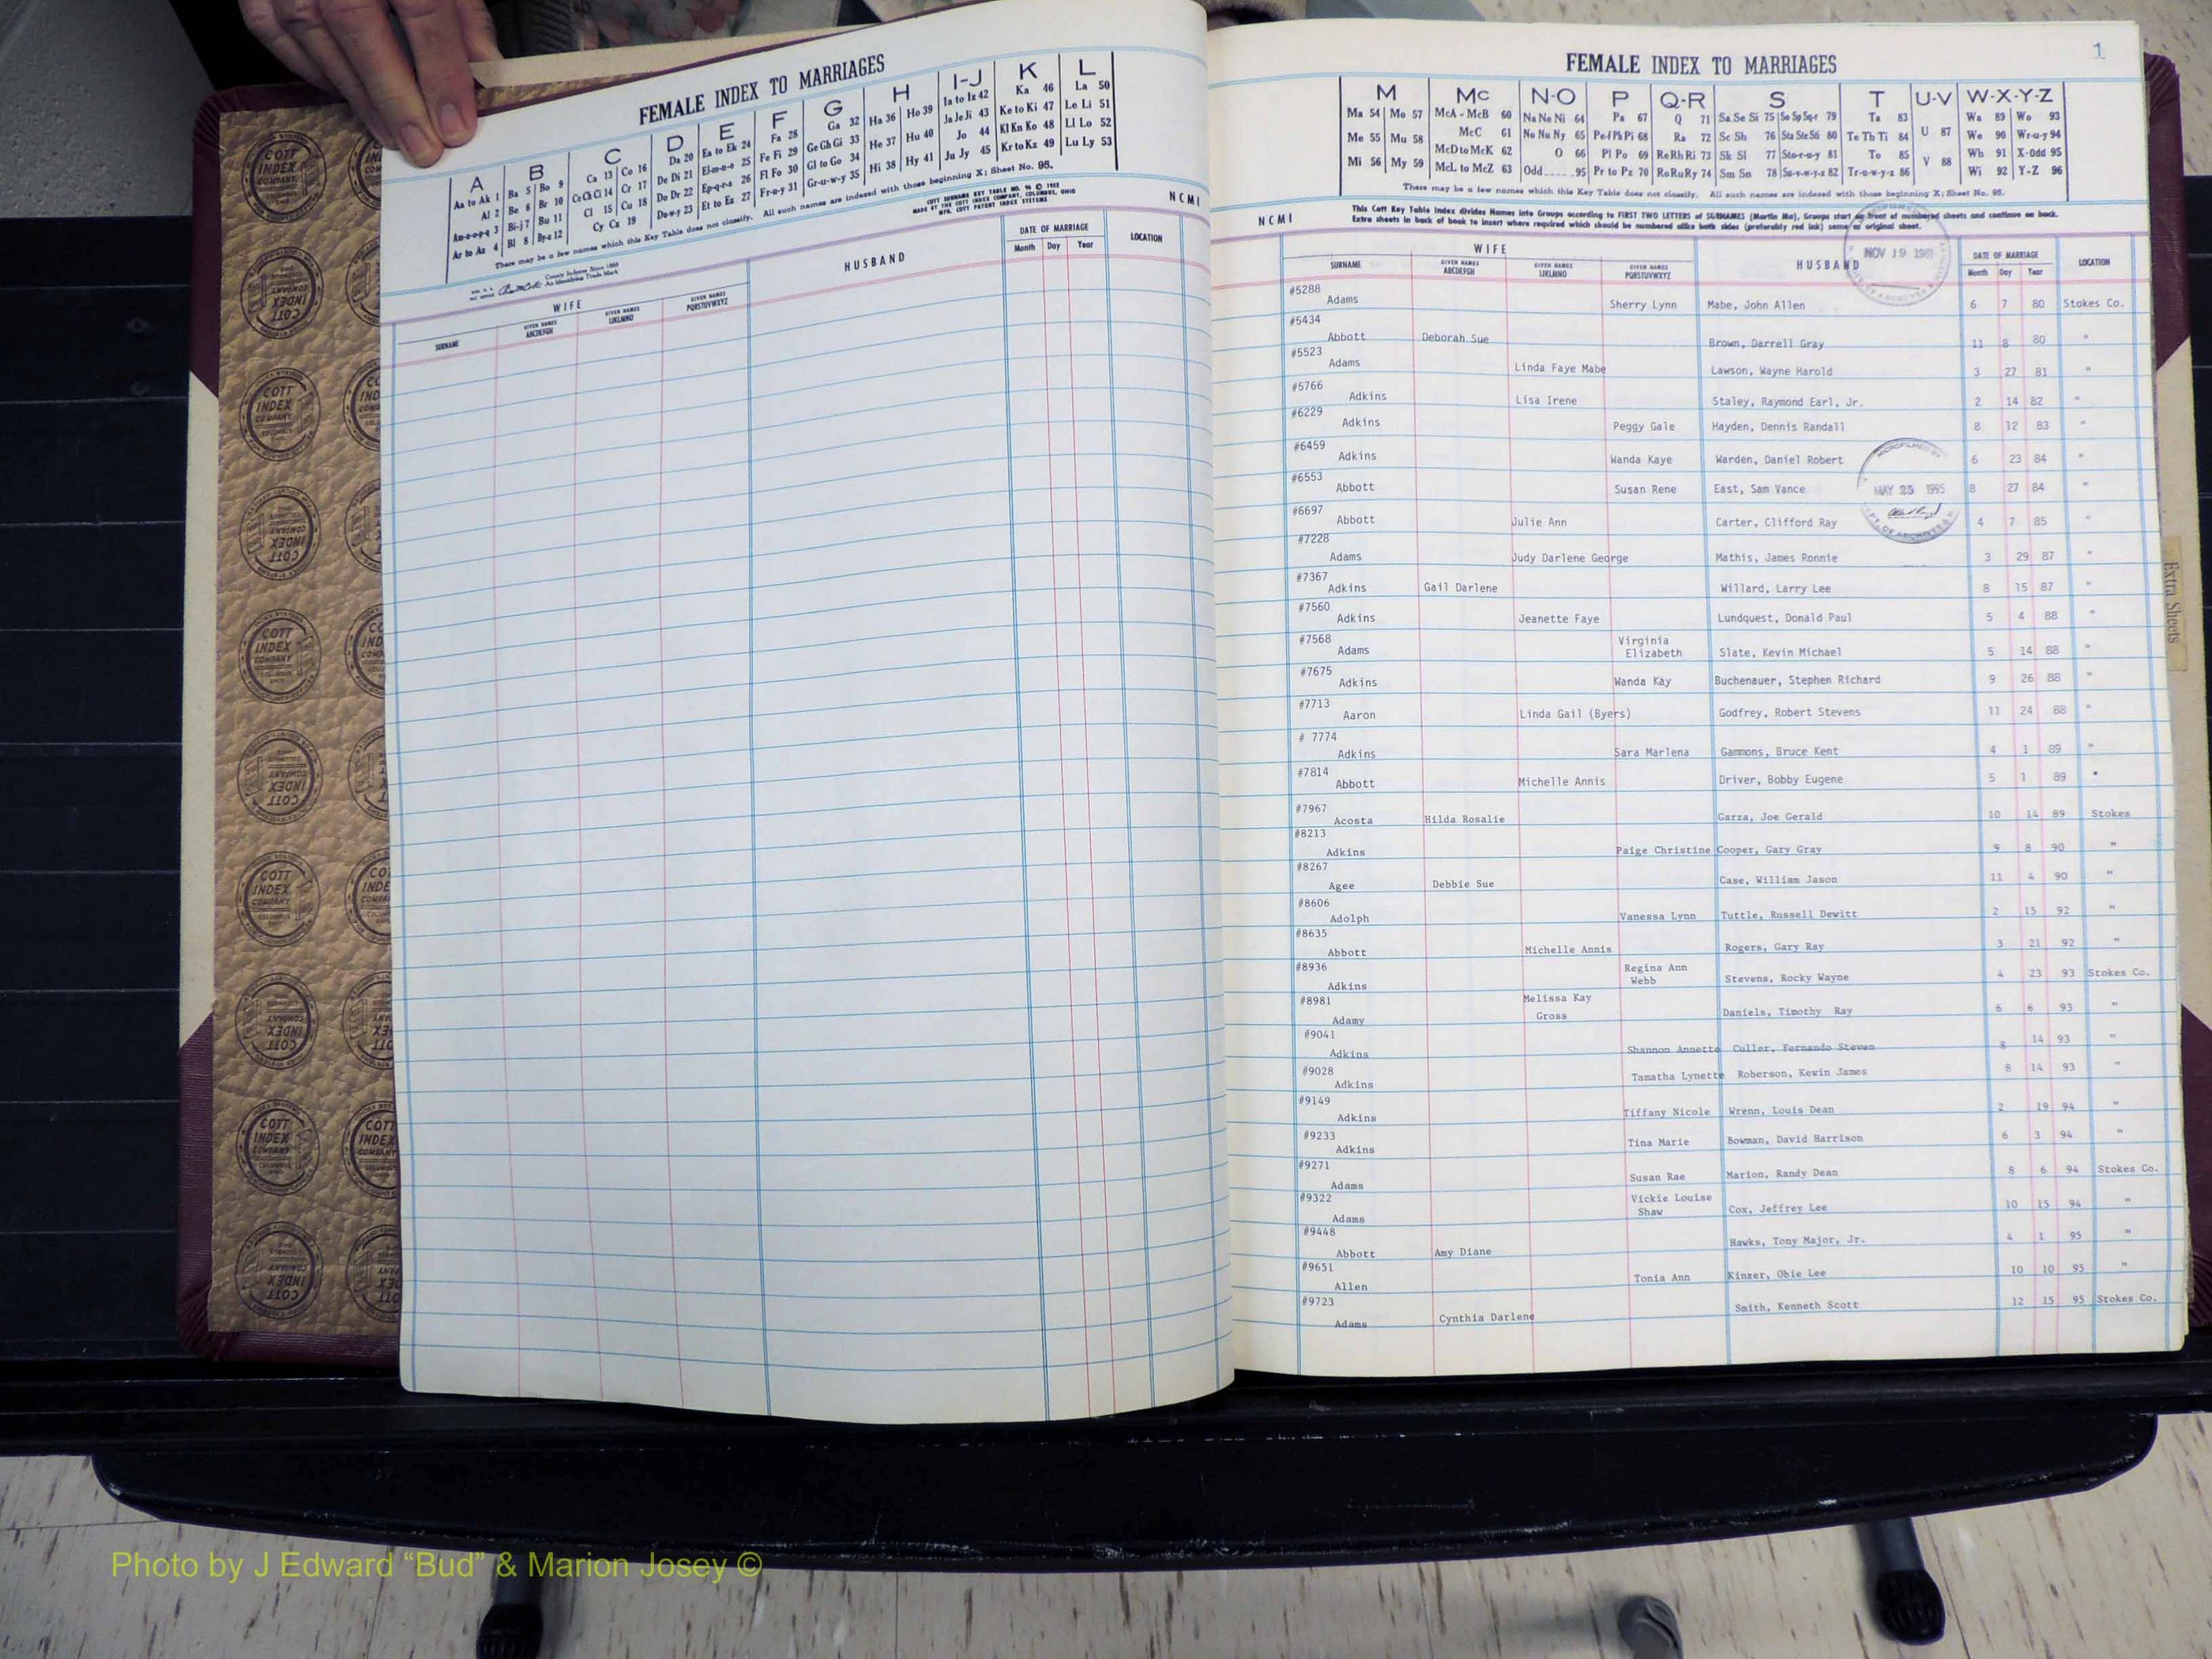 FEMALE INDEX TO MARRIAGES
A B C D E F G H I-J K L
Aa to Ak 1 Ba 5 Bo 9 Ca 13 Co 16 Da 20 Ea to Ek 24 Fa 28 Ga 32 Ha 36 Ho 39 Ia to Iz 42 Ka 46 La 50
Al 2 Be 6 Br 10 Ce Ch Ci 14 Cr 17 De Di 21 El-m-n-o 25 Fe Fi 29 Ge Gh Gi 33 He 37 Hu 40 Ja Je Ji 43 Ke to Ki 47 Le Li 51
Am-n-o-p-q 3 Bi-j 7 Bu 11 Cl 15 Cu 18 Do Dr 22 Ep-q-r-s 26 Fl Fo 30 Gl to Go 34 Hi 38 Hy 41 Jo 44 Kl Kn Ko 48 Ll Lo 52
Ar to Az 4 Bl 8 By-z 12 Cy Cz 19 Du-w-y 23 Et to Ez 27 Fr-u-y 31 Gr-u-w-y 35 Ju Jy 45 Kr to Kz 49 Lu Ly 53
There may be a few names which this Key Table does not classify. All such names are indexed with those beginning X; Sheet No. 95.
NCMI
WIFE HUSBAND DATE OF MARRIAGE LOCATION
SURNAME GIVEN NAMES ABCDEFGH GIVEN NAMES IJKLMNO GIVEN NAMES PQRSTUVWXYZ Month Day Year
1
FEMALE INDEX TO MARRIAGES
M Mc N-O P Q-R S T U-V W-X-Y-Z
Ma 54 Mo 57 McA - McB 60 Na Ne Ni 64 Pa 67 Q 71 Sa Se Si 75 So Sp Sq-r 79 Ta 83 U 87 Wa 89 Wo 93
Me 55 Mu 58 McC 61 No Nu Ny 65 Pe-f Ph Pi 68 Ra 72 Sc Sh 76 Sta Ste Sti 80 Te Th Ti 84 V 88 We 90 Wr-u-y 94
Mi 56 My 59 McD to McK 62 O 66 Pl Po 69 Re Rh Ri 73 Sk Sl 77 Sto-r-u-y 81 To 85 Wh 91 X-Odd 95
McL to McZ 63 Odd 95 Pr to Pz 70 Ro Ru Ry 74 Sm Sn 78 Su-v-w-y-z 82 Tr-u-w-y-z 86 Wi 92 Y-Z 96
There may be a few names which this Key Table does not classify. All such names are indexed with those beginning X; Sheet No. 95.
NCMI
This Cott Key Table Index divides Names into Groups according to FIRST TWO LETTERS of SURNAMES (Martin Ma), Groups start on front of numbered sheets and continue on back.
Extra sheets in back of book to insert where required which should be numbered alike both sides (preferably red ink) same as original sheet.
NOV 19 1981
WIFE HUSBAND DATE OF MARRIAGE LOCATION
SURNAME GIVEN NAMES ABCDEFGH GIVEN NAMES IJKLMNO GIVEN NAMES PQRSTUVWXYZ Month Day Year
#5288 Adams Sherry Lynn Mabe, John Allen 6 7 80 Stokes Co.
#5434 Abbott Deborah Sue Brown, Darrell Gray 11 8 80 "
#5523 Adams Linda Faye Mabe Lawson, Wayne Harold 3 27 81 "
#5766 Adkins Lisa Irene Staley, Raymond Earl, Jr. 2 14 82 "
#6229 Adkins Peggy Gale Hayden, Dennis Randall 8 12 83 "
#6459 Adkins Wanda Kaye Warden, Daniel Robert 6 23 84 "
#6553 Abbott Susan Rene East, Sam Vance 8 27 84 "
MICROFILMED BY
MAY 25 1995
#6697 Abbott Julie Ann Carter, Clifford Ray 4 7 85 "
#7228 Adams Judy Darlene George Mathis, James Ronnie 3 29 87 "
#7367 Adkins Gail Darlene Willard, Larry Lee 8 15 87 "
#7560 Adkins Jeanette Faye Lundquest, Donald Paul 5 4 88 "
#7568 Adams Virginia Elizabeth Slate, Kevin Michael 5 14 88 "
#7675 Adkins Wanda Kay Buchenauer, Stephen Richard 9 26 88 "
#7713 Aaron Linda Gail (Byers) Godfrey, Robert Stevens 11 24 88 "
# 7774 Adkins Sara Marlena Gammons, Bruce Kent 4 1 89 "
#7814 Abbott Michelle Annis Driver, Bobby Eugene 5 1 89 "
#7967 Acosta Hilda Rosalie Garza, Joe Gerald 10 14 89 Stokes
#8213 Adkins Paige Christine Cooper, Gary Gray 9 8 90 "
#8267 Agee Debbie Sue Case, William Jason 11 4 90 "
#8606 Adolph Vanessa Lynn Tuttle, Russell Dewitt 2 15 92 "
#8635 Abbott Michelle Annis Rogers, Gary Ray 3 21 92 "
#8936 Adkins Regina Ann Webb Stevens, Rocky Wayne 4 23 93 Stokes Co.
#8981 Adamy Melissa Kay Gross Daniels, Timothy Ray 6 6 93 "
#9041 Adkins Shannon Annette Culler, Fernando Steven 8 14 93 "
#9028 Adkins Tamatha Lynette Roberson, Kevin James 8 14 93 "
#9149 Adkins Tiffany Nicole Wrenn, Louis Dean 2 19 94 "
#9233 Adkins Tina Marie Bowman, David Harrison 6 3 94 "
#9271 Adams Susan Rae Marion, Randy Dean 8 6 94 Stokes Co.
#9322 Adams Vickie Louise Shaw Cox, Jeffrey Lee 10 15 94 "
#9448 Abbott Amy Diane Hawks, Tony Major, Jr. 4 1 95 "
#9651 Allen Tonia Ann Kinzer, Obie Lee 10 10 95 "
#9723 Adams Cynthia Darlene Smith, Kenneth Scott 12 15 95 Stokes Co.
Extra Sheets
COTT INDEX COMPANY
Photo by J Edward “Bud” & Marion Josey ©